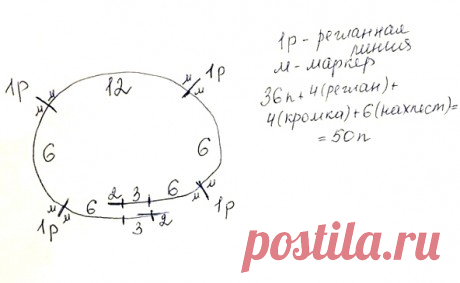 1р - регланная
линия
м - маркер
36п + 4(реглан) +
4(кромка) + 6(нахлест) =
= 50п
1р 12 1р
м м м м
6 6
м м м м
1р 6 2 3 6 1р
3 2
postila.ru